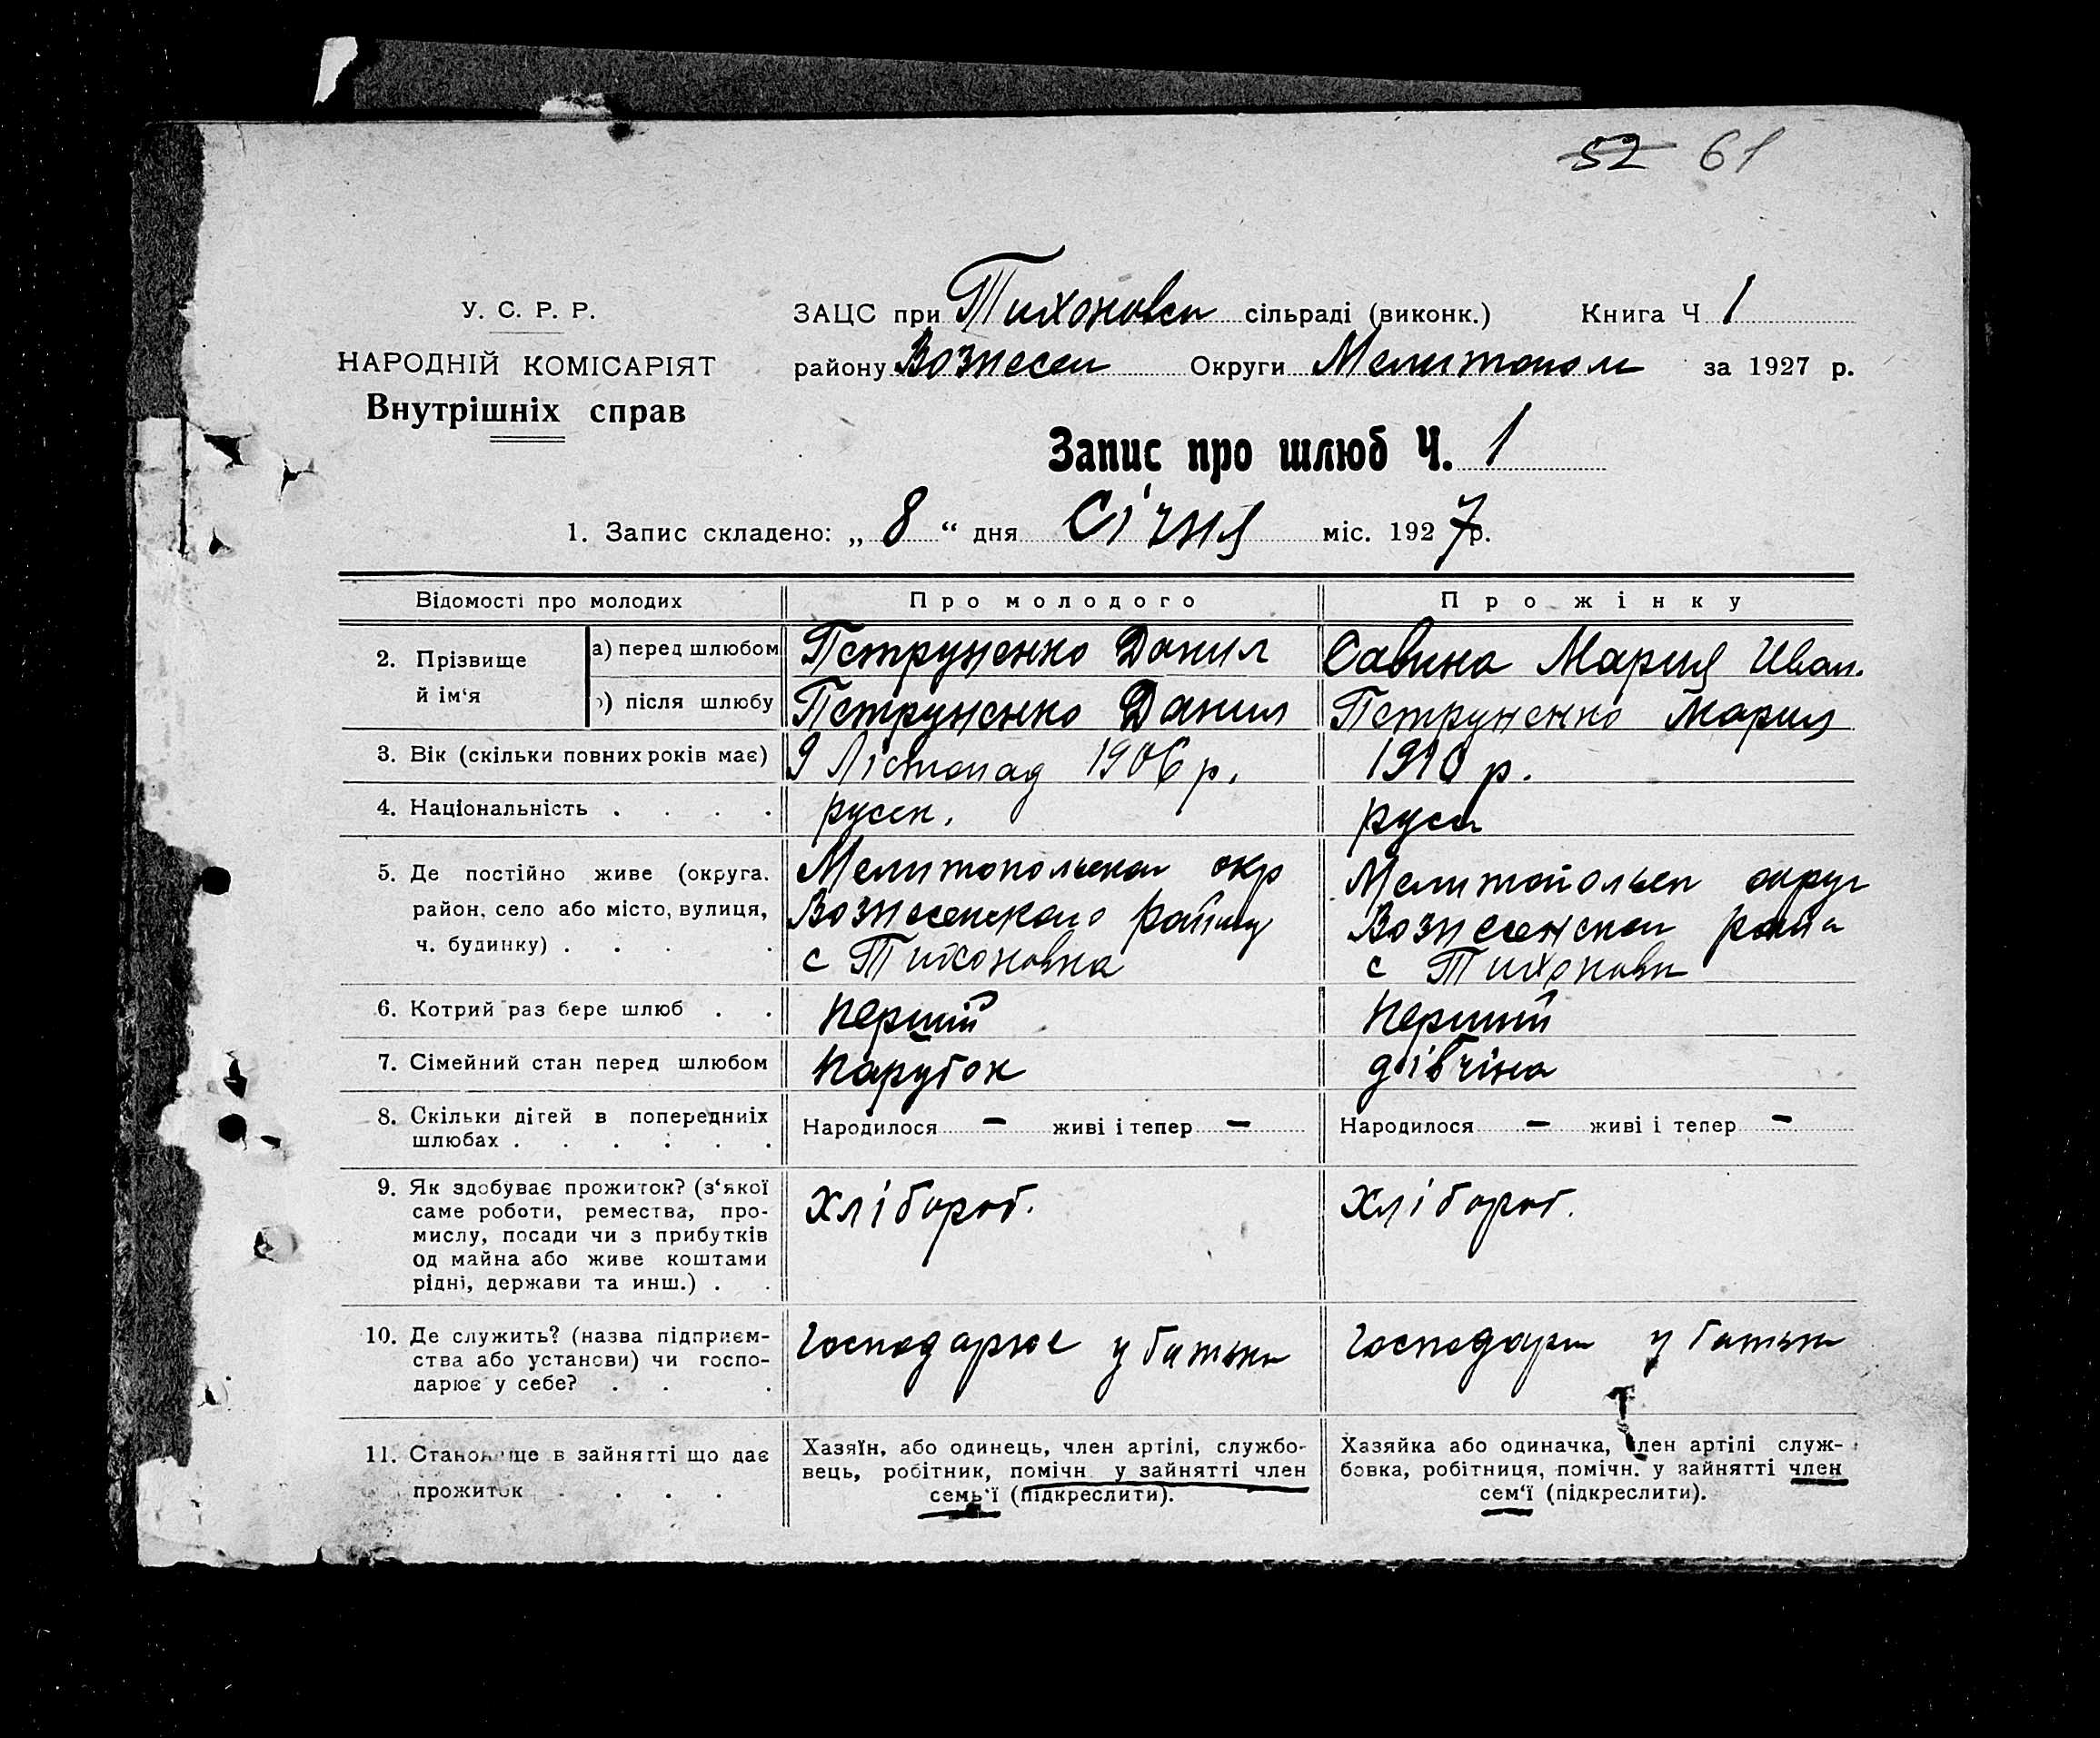 52 61
У. С. Р. Р.
НАРОДНІЙ КОМІСАРІЯТ
Внутрішніх справ
ЗАЦС при Тихоновск сільраді (виконк.) Книга Ч 1
району Вознесен Округи Мелитопол за 1927 р.
Запис про шлюб Ч. 1
1. Запис складено: „ 8 “ дня Січня міс. 1927 р.
Відомості про молодих Про молодого Про жінку
2. Прізвище й ім‘я
а) перед шлюбом Петруненко Данил Савина Мария Иван.
) після шлюбу Петруненко Данил Петруненко Мария
3. Вік (скільки повних років має) 9 Лістопад 1906 р. 1910 р.
4. Національність . . . . русск. русск
5. Де постійно живе (округа. Мелитопольской окр Мелитопольск округ
район, село або місто, вулиця, Вознесенского району Вознесенской
ч. будинку) . . . . с Тихоновка с Тихоновк
6. Котрий раз бере шлюб . . перший перший
7. Сімейний стан перед шлюбом паруbок дівчіна
8. Скільки дітей в попередниіх Народилося — живі і тепер — Народилося — живі і тепер —
шлюбах . . . . . .
9. Як здобуває прожиток? (з‘якої Хлібороб. Хлібороб.
саме роботи, ремества, про-
мислу, посади чи з прибутків
од майна або живе коштами
рідні, держави та инш.) . .
10. Де служить? (назва підприєм- господарює у батьки господарю у батьки
ства або установи) чи госпо-
дарює у себе? . . .
11. Становище в зайнятті що дає
прожиток . . . .
Хазяїн, або одинець, член артілі, службо-
вець, робітник, помічн у зайнятті член
семь‘ї (підкреслити).
Хазяйка або одиначка, член артілі служ-
бовка, робітниця, помічн. у зайнятті член
сем‘ї (підкреслити).